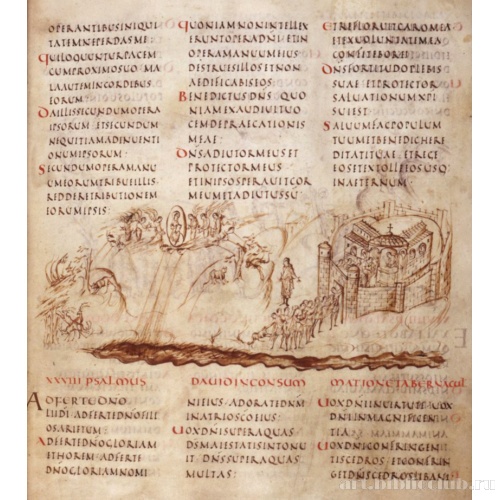 OPERANTIBUSINIQUI
TATEMNEPERDASME
QUILOQUUNTURPACEM
CUMPROXIMOSUO MA
LAAUTEMINCORDIBUS
EORUM
DAILLISSECUNDUMOPERA
IPSORUM ETSECUNDUM
NIQUITIAMADINUENTI
ONUMIPSORUM:
SECUNDUMOPERAMANU
UMEORUMTRIBUEILLIS
REDDERETRIBUTIONEM
EORUMIPSIS:
QUONIAMNONINTELLEX
ERUNTOPERADNI ETIN
OPERAMANUUMEIUS
DESTRUESILLOSETNON
AEDIFICABISEOS:
BENEDICTUSDNS QUO
NIAMEXAUDIUITUO
CEMDEPRAECATIONIS
MEAE
DNSADIUTORMEUSET
PROTECTORMEUS
ETINIPSOSPERAUITCOR
MEUMETADIUTUSSU
ETREFLORUITCAROMEA
ETEXUOLUNTATEMEA
CONFITEBOREI
DNSFORTITUDOPLEBIS
SUAE ETPROTECTOR
SALUATIONUMXPI
SUIEST
SALUUMFACPOPULUM
TUUMETBENEDICHERE
DITATITUAE ETREGE
EOSETEXTOLLEILLOSUSQ
INAETERNUM
XXVIII PSALMUS DAUID IN CONSUM MATIONE TABERNACUL
ADFERTEDNO
FILIIDIADFERTEDNOFILI
OSARIETUM
ADFERTEDNOGLORIAM
ETHOREM ADFERTE
DNOGLORIAMNOMI
NIEIUS ADORATEDNM
INATRIOSCOEIUS:
UOXDNISUPERAQUAS
DSMAIESTATISINTONU
IT DNSSUPERAQUAS
MULTAS:
UOXDNIINUIRTUTE UOX
DNIINMAGNIFICEN
TIA
UOXDNICONFRINGEN
TISCEDROS ETCONFRIN
GETDNSCEDROSLIBANI
art.biblioclub.ru